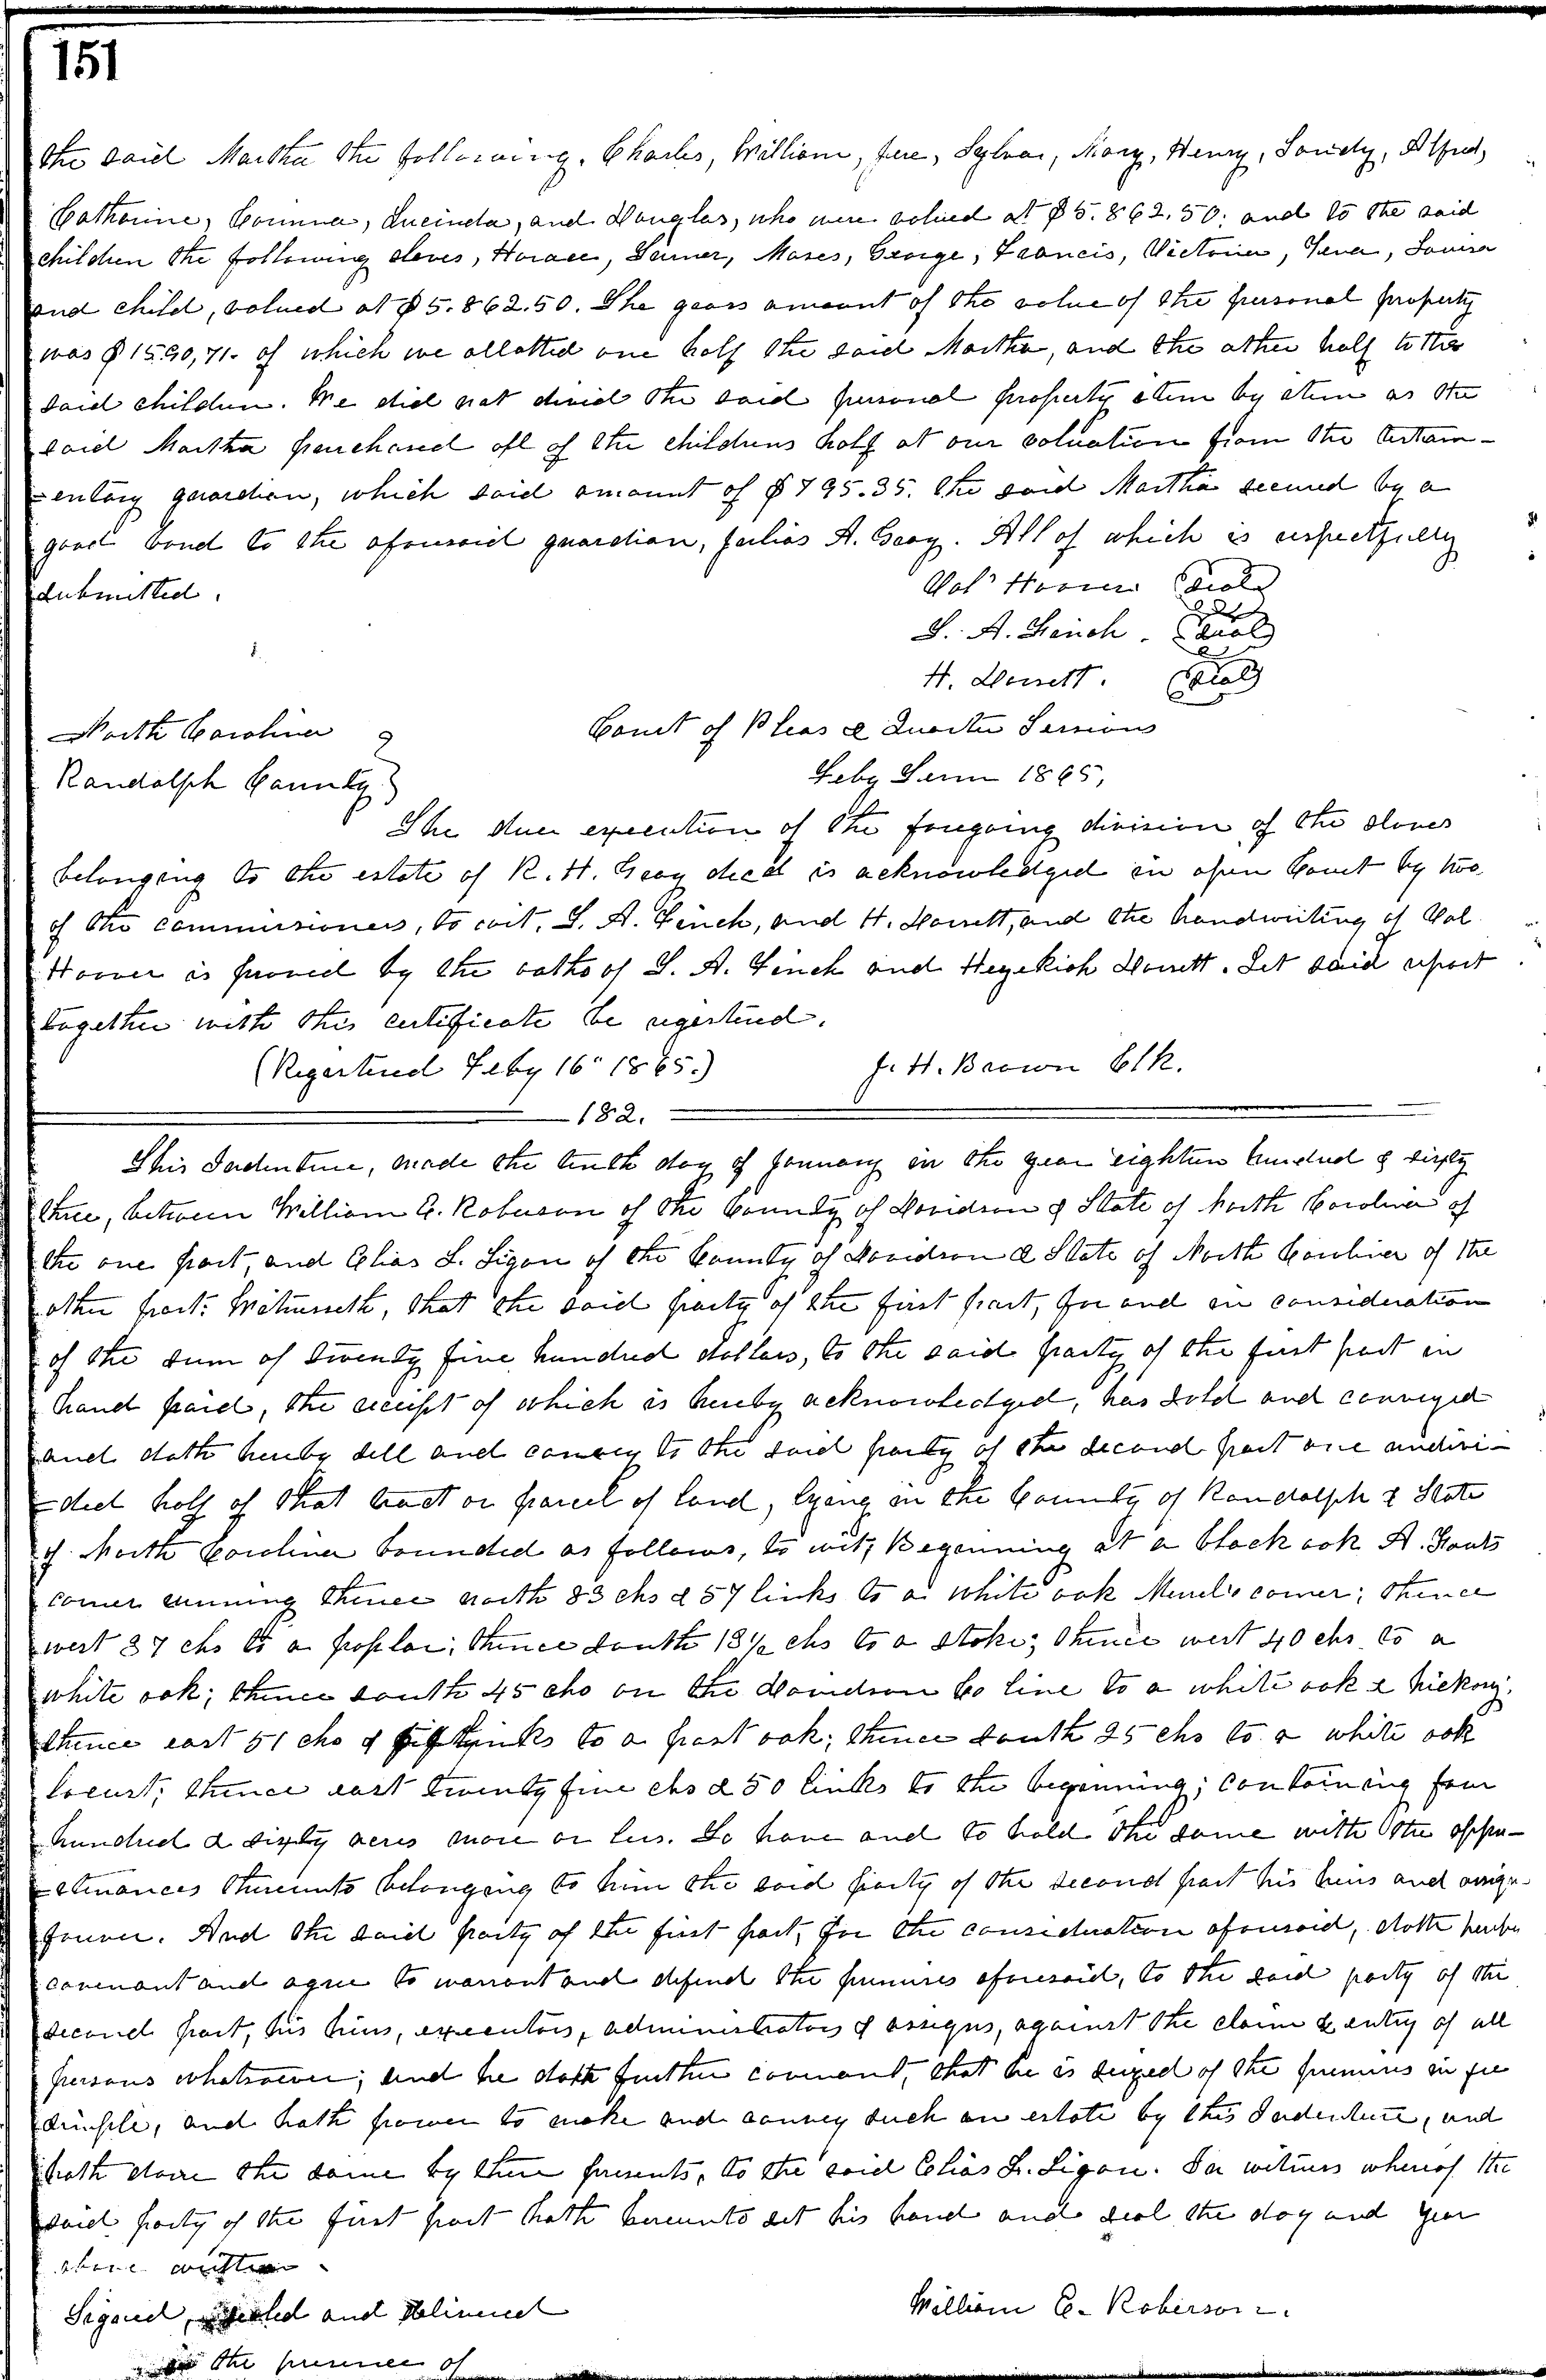 151
the said Martha the following, Charles, William, Jere, Sylva, Mary, Henry, Sandy, Alfred,
Catharine, Corinna, Lucinda, and Douglas, who were valued at $5.862.50. and to the said
children the following slaves, Horace, Turner, Moses, George, Francis, Victoria, Jena, Louisa
and child, valued at $5.862.50. The gross amount of the value of the personal property
was $1590,71. of which we allotted one half the said Martha, and the other half to the
said children. We did not divid the said personal property item by item as the
said Martha purchased all of the childrens half at our valuation from the testam-
-entary guardian, which said amount of $795.35. the said Martha secured by a
good bond to the aforesaid guardian, Julias A. Gray. All of which is respectfully
submitted. Val Hoover Seal
S. A. Finch. Seal
H. Dorsett. Seal
North Carolina Court of Pleas & Quarter Sessions
Randolph County Feby Term 1865,
The due execution of the foregoing division of the slaves
belonging to the estate of R. H. Gray decd is acknowledged in open Court by two
of the commissioners, to wit, S. A. Finch, and H. Dorsett, and the handwriting of Val
Hoover is proved by the oaths of S. A. Finch and Hezekiah Dorsett. Let said report
together with this certificate be registered.
(Registered Feby 16" 1865.) J. H. Brown Clk.
182.
This Indenture, made the tenth day of January in the year eighteen hundred & sixty
three, between William E. Roberson of the County of Davidson & State of North Carolina of
the one part, and Elias L. Ligon of the County of Davidson & State of North Carolina of the
other part: Witnesseth, that the said party of the first part, for and in consideration
of the sum of twenty five hundred dollars, to the said party of the first part in
hand paid, the receipt of which is hereby acknowledged, has sold and conveyed
and doth hereby sell and convey to the said party of the second part one undivi-
-ded half of that tract or parcel of land, lying in the County of Randolph & State
of North Carolina bounded as follows, to wit; Beginning at a black oak A. Fouts
corner running thence north 83 chs & 57 links to a white oak corner; thence
west 37 chs to a poplar; thence south 18½ chs to a stake; thence west 40 chs to a
white oak; thence south 45 chs on the Davidson Co line to a white oak & hickory;
thence east 51 chs & links to a post oak; thence south 25 chs to a white oak
locust; thence east twenty five chs & 50 links to the beginning; containing four
hundred & sixty acres more or less. To have and to hold the same with the appur-
-tenances thereunto belonging to him the said party of the second part his heirs and assigns
forever. And the said party of the first part, for the consideration aforesaid, doth hereby
covenant and agree to warrant and defend the premises aforesaid, to the said party of the
second part, his heirs, executors, administrators & assigns, against the claim & entry of all
persons whatsoever; and he doth further covenant, that he is seized of the premises in fee
simple, and hath power to make and convey such an estate by this Indenture, and
hath done the same by these presents, to the said Elias L. Ligon. In witness whereof the
said party of the first part hath hereunto set his hand and seal the day and year
above written.
Signed, sealed and delivered William E. Roberson.
in the presence of